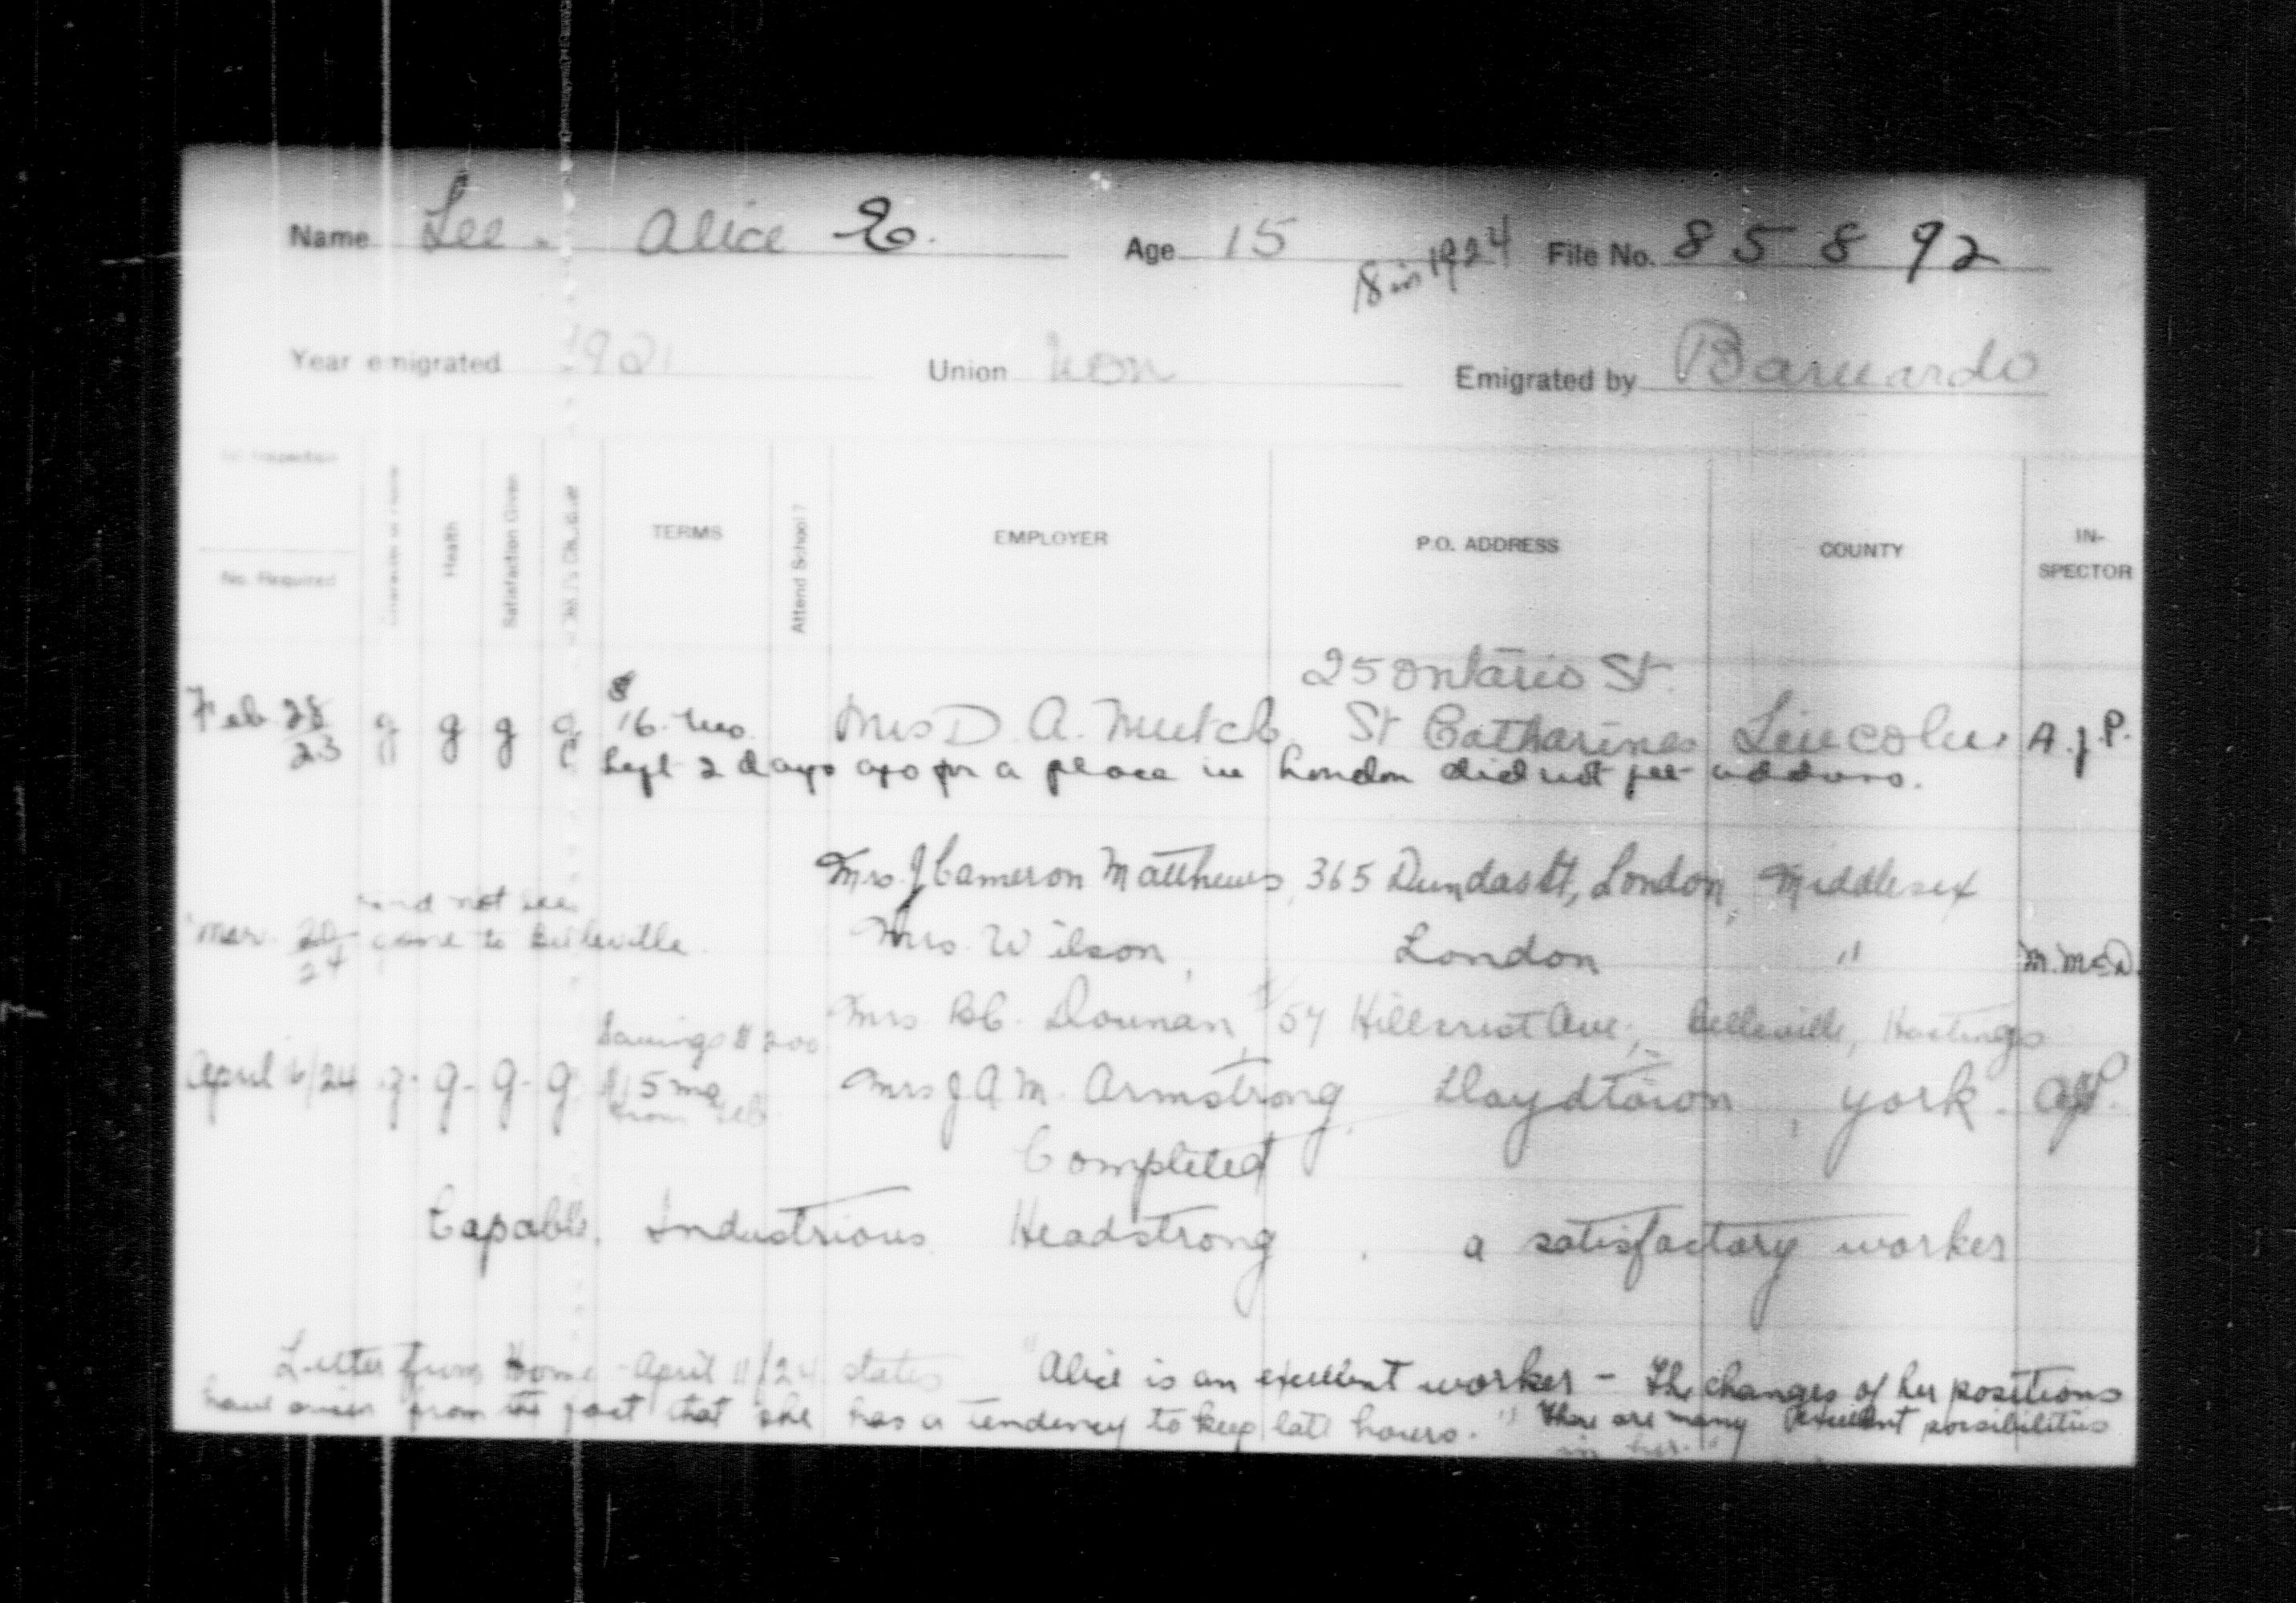 Name Lee - Alice E. Age 15 18 in 1924 File No. 85892
Year emigrated 1921 Union Non Emigrated by Barnardo
No. Required
Health
Satisfaction Given
TERMS
Attend School?
EMPLOYER
P.O. ADDRESS
COUNTY
IN-
SPECTOR
25 Ontario St.
Feb 28/23 g g g g 16. Mrs D. A. Mutch, St Catharines Lincoln A.J.P.
Left 2 days ago for a place in London did not get address.
Mrs. J Cameron Matthews, 365 Dundas St, London, Middlesex
did not see
Mar. 20/24 gone to Belleville. Mrs. Wilson, London " M. McD.
Mrs. Dounan, 54 Hillcrest Ave., Belleville, Hastings
Savings $200
April 6/24 g. g. g. g. $15 mo Mrs J A M. Armstrong, Lloydtown, York. A.J.P.
from Feb
Completed
Capable. Industrious Headstrong. a satisfactory worker
Letter from Home - April 11/24 states "Alice is an excellent worker - The changes of her positions
have arisen from the fact that she has a tendency to keep late hours." There are many excellent possibilities
in her."